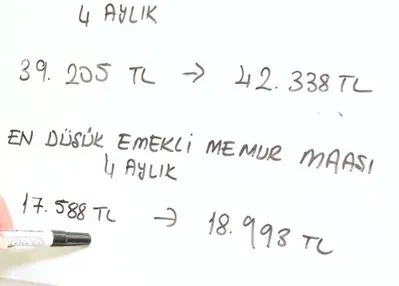 4 AYLIK
39.205 TL → 42.338 TL
EN DÜŞÜK EMEKLİ MEMUR MAAŞI
4 AYLIK
17.588 TL → 18.993 TL